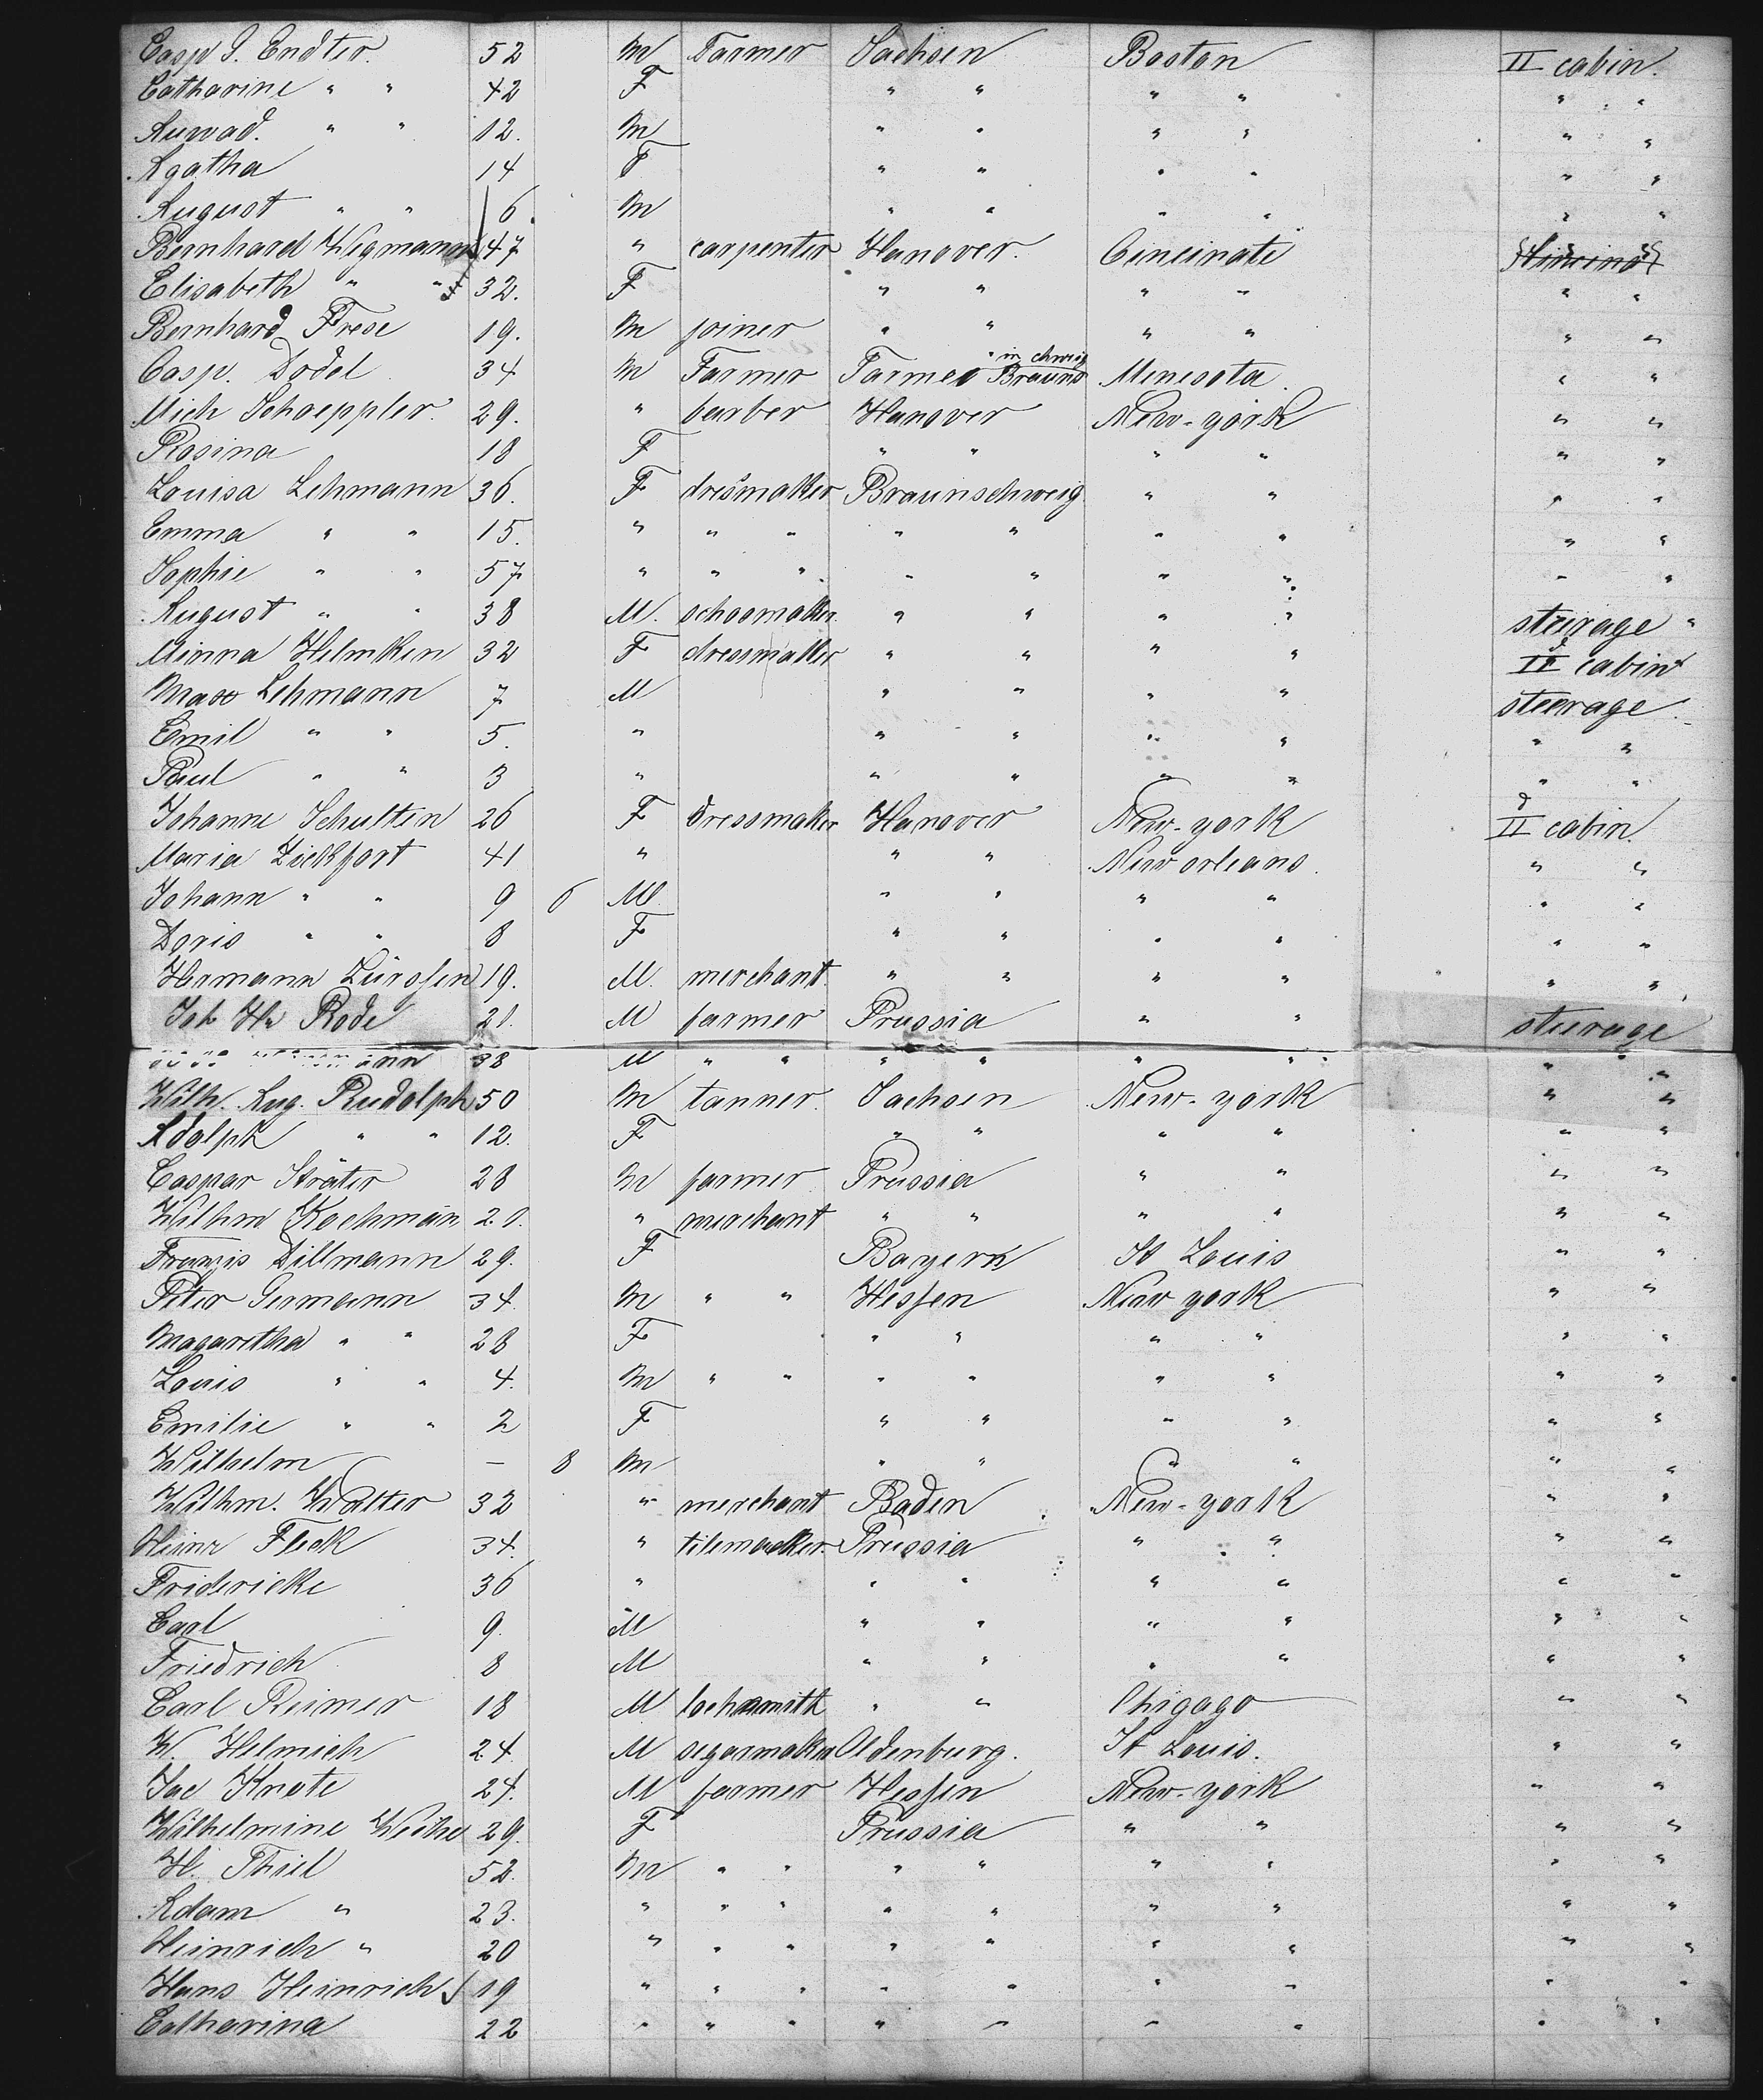 Casp S. Endter. 52 M Farmer Sachsen Boston II cabin.
Catharine " " 42 F " " " " " "
" " 12. M " " " " " "
Agatha 14 F " " " " " "
August " " 6. M " " " " " "
Bernhard Wegmann 47 " carpenter Hanover. Cincinati
Elisabeth " " 32. F " " " " " "
Bernhard Frese 19. M joiner " " " " " "
Casp. Dodel 34 M Farmer Farmer Braunschweig Minesota. " "
Mich Schoeppler. 29. " barber Hanover New-york " "
Rosina 18 F " " " " " "
Louisa Lehmann 36. F dresmaker Braunschweig " " " "
Emma " " 15. " " " " " " " " "
Sophie " " 57 " " " " " " " " "
August " " 38 M. schoomaker. " " " " steurage "
Minna Helmken 32 F dressmaker " " " " II cabin
Max Lehmann 7 M " " " " steerage.
Emil " " 5. " " " " " " "
Paul " " 3 " " " " " " "
Johanne Schulten 26 F dressmaker Hanover New-york II cabin.
Maria Zieckfort 41 " " " New orleans. " "
Johann " " 9 6 M " " " " " "
Doris " " 8 F " " " " " "
Hermann Lürssen 19. M. merchant. " " " " " "
Joh Hr Rode 21. M farmer Prussia " " steurage
38 M " " " " " " " "
Wilh. Aug. Rudolph 50 M tanner. Sachsen New-york " "
Adolph " " 12. F " " " " " "
Caspar Sträter 28 M farmer Prussia " " " "
Wilhm Kochmann 20. " merchant " " " " " "
Franzis Dillmann 29. F Bayern St Louis " "
Peter Germann 34. M " " Hessen New york " "
Magaretha " " 28 F " " " " " "
Louis " " 4. M " " " " " " " "
Emilie " " 2 F " " " " " "
Wilhelm — 8 M " " " " " "
Wilhm. Walter 32 " merchant Baden New-york " "
Heinr Fleck 34. " tilemacker. Prussia " " " "
Fridericke 36 " " " " " " "
Carl 9. M " " " " " "
Friedrich 8 M " " " " " "
Carl Reimer 18 M locksmith " " Chigago " "
W. Helmich 24 M segarmaker Oldenburg. St Louis. " "
Jac Knote 24. M farmer Hessen New-york " "
Wilhelmine Weihe 29. F Prussia " " " "
H. Thiel 52. M " " " " " " " "
Adam " 23. " " " " " " " " "
Heinrich " 20 " " " " " " " " "
Hans Heinrich 19 " " " " " " " " "
Catharina 22 " " " " " " " " "